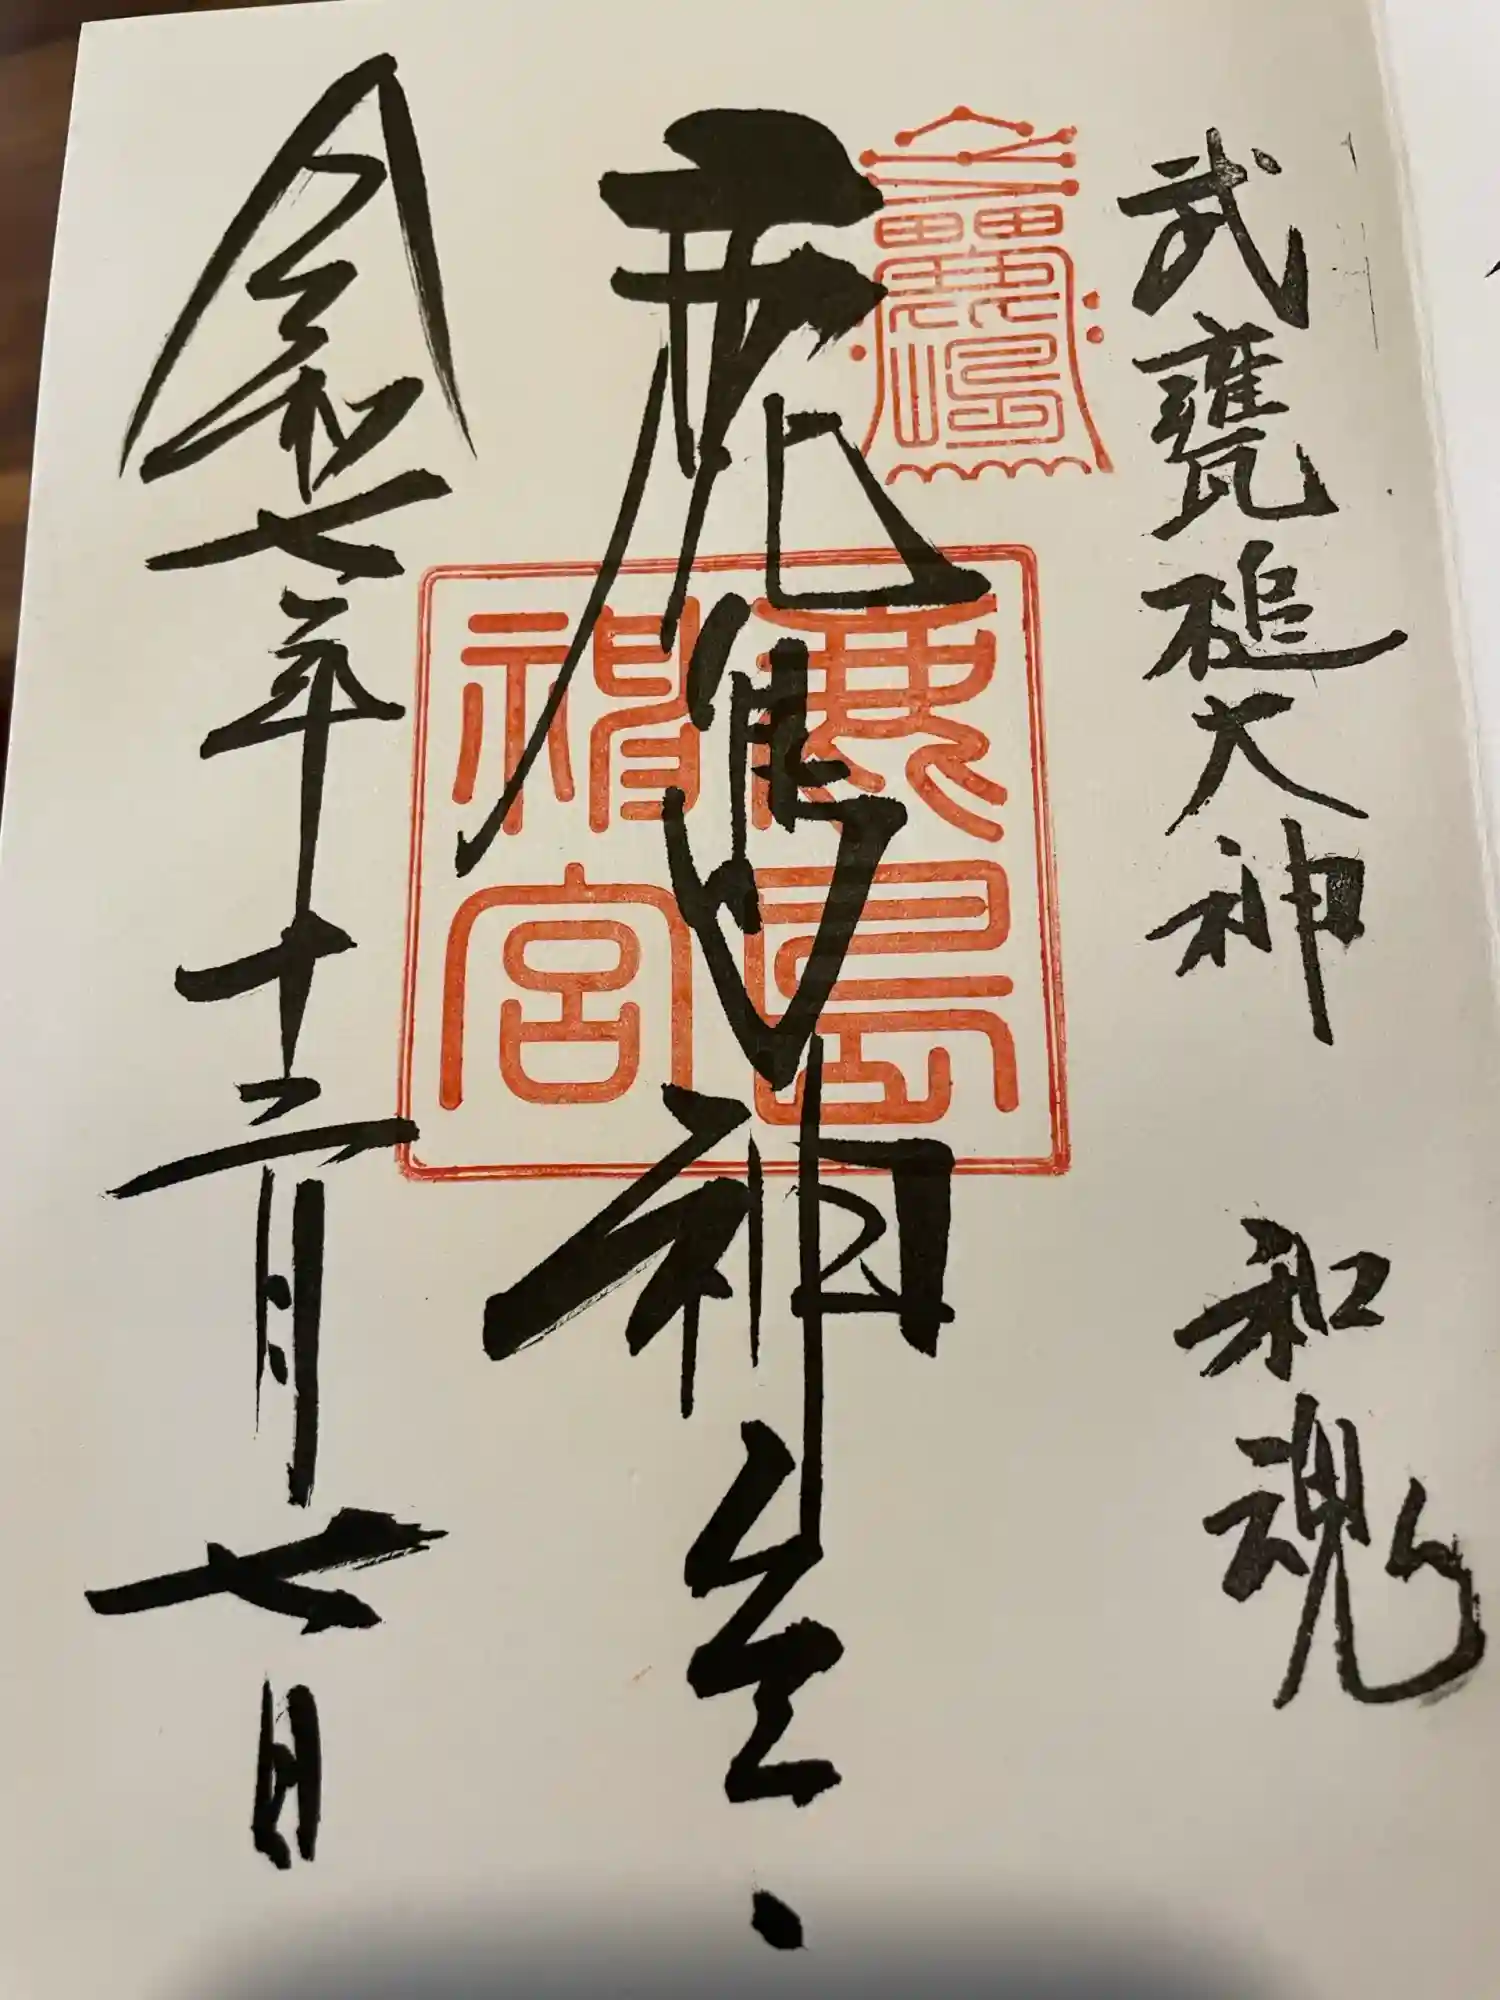 武甕槌大神 和魂
鹿島神宮
令和七年十二月七日
鹿島
神宮